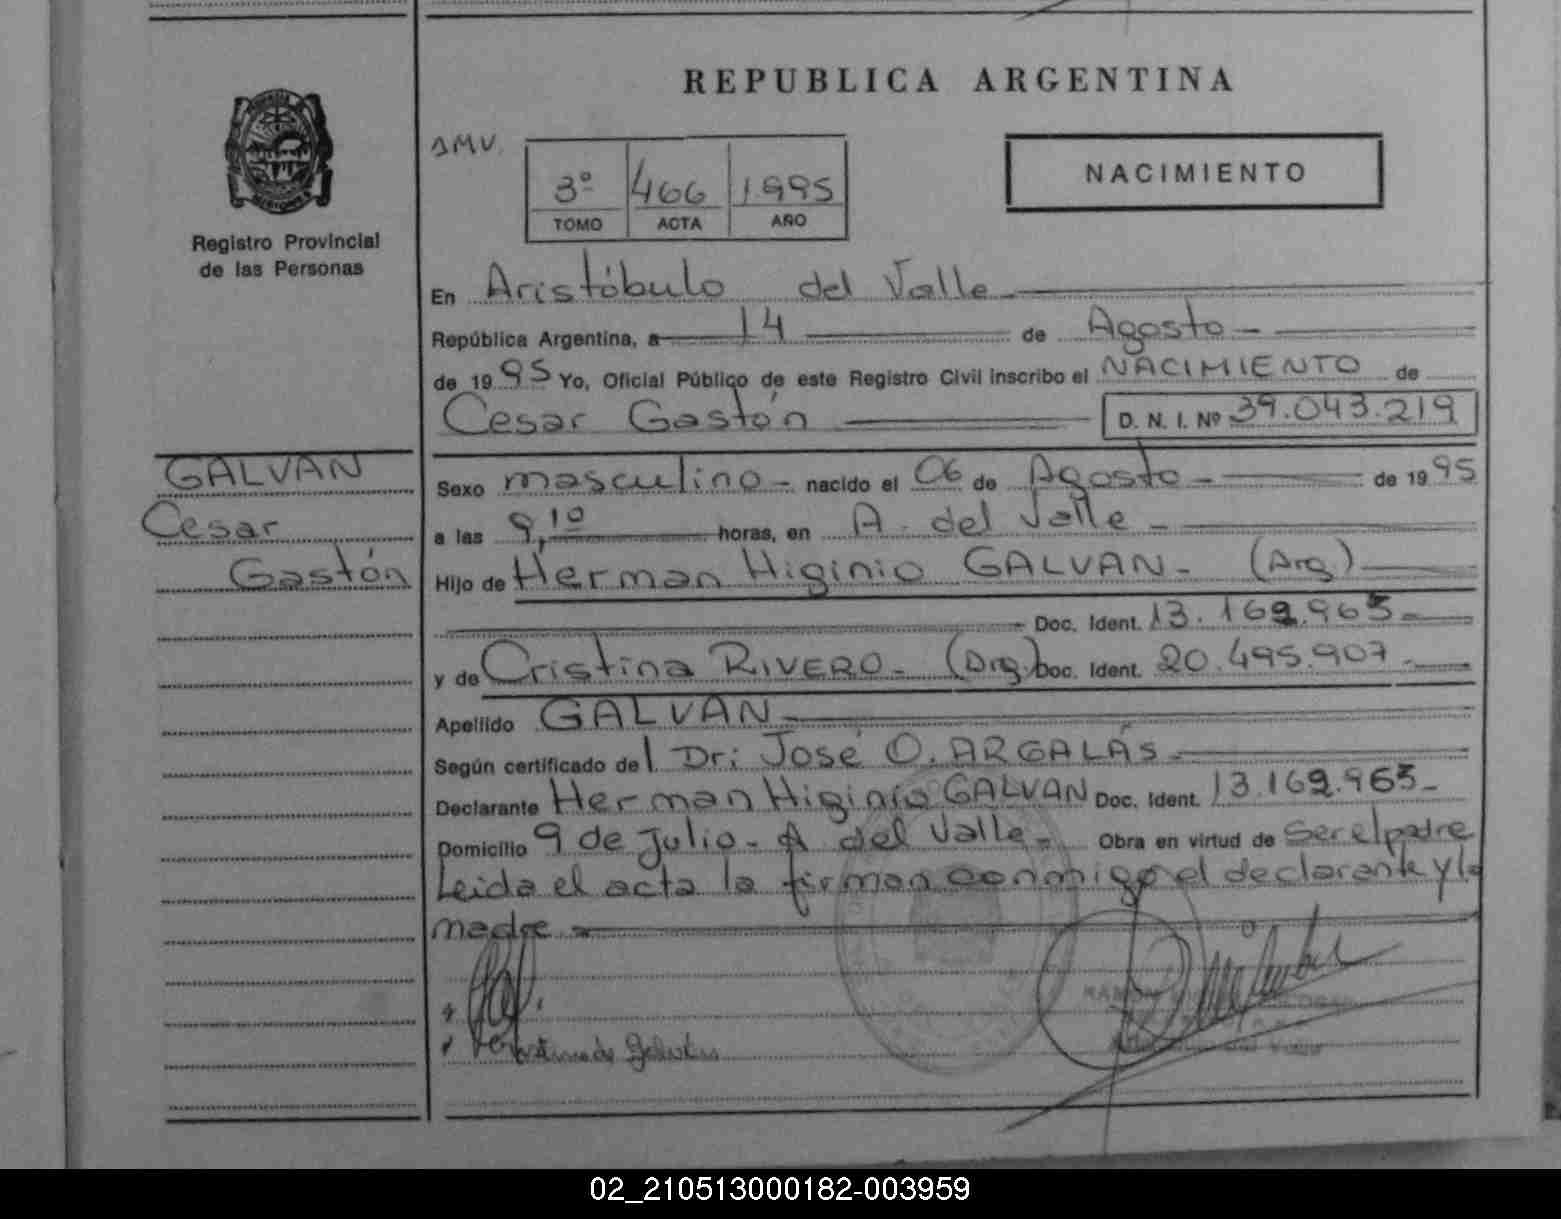 REPUBLICA ARGENTINA
Registro Provincial
de las Personas
3º 466 1.995
TOMO ACTA AÑO
NACIMIENTO
En Aristóbulo del Valle
República Argentina, a 14 de Agosto
de 1995 Yo, Oficial Público de este Registro Civil inscribo el NACIMIENTO de
Cesar Gastón D. N. I. Nº 39.043.219
GALVAN
Cesar
Gastón
Sexo masculino nacido el 06 de Agosto de 1995
a las 9,10 horas, en A. del Valle
Hijo de Herman Higinio GALVAN (Arg.)
Doc. Ident. 13.169.965
y de Cristina RIVERO (Arg.) Doc. Ident. 20.495.907
Apellido GALVAN
Según certificado del Dr: José O. ARGALÁS
Declarante Herman Higinio GALVAN Doc. Ident. 13.169.965
Domicilio 9 de Julio - A del Valle Obra en virtud de Ser el padre
Leida el acta la firman conmigo el declarante y la
madre
02_210513000182-003959